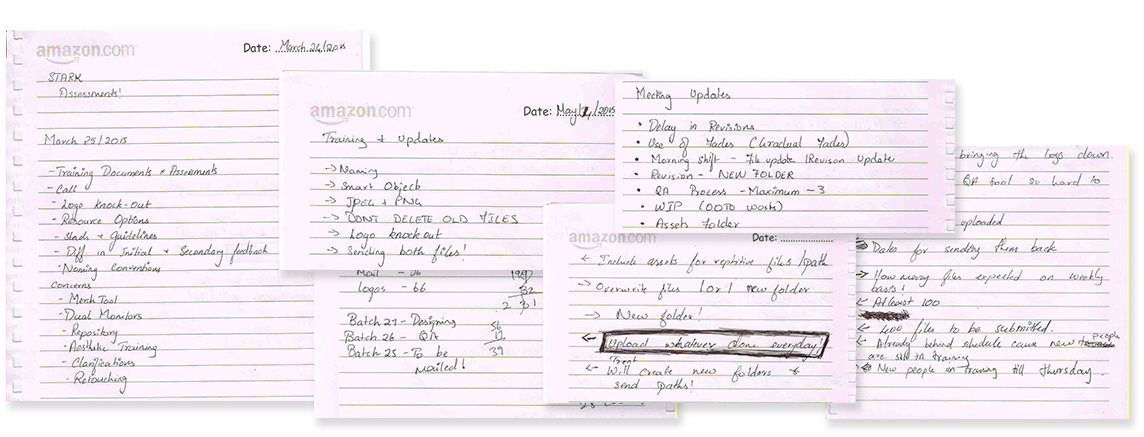 amazon.com
Date: March 24/2015
STARK
Assessments!
March 25/2015
- Training Documents & Assessments
- Call
- Logo knock-out
- Resource Options
- & Guidelines
- Diff in Initial & Secondary feedback
- Naming Conventions
Concerns
- Merch Tool
- Dual Monitors
- Repository
- Aesthetic Training
- Clarifications
- Retouching
amazon.com
Date: May /2015
Training & Updates
→ Naming
→ Smart Objects
→ JPEG & PNG
→ DONT DELETE OLD FILES
→ Logo knockout
→ Sending both files!
Mail - 26
logos - 66
32
2 31
Batch 27 - Designing 56
Batch 26 - QA 17
Batch 25 - To be 39
mailed!
Meeting Updates
• Delay in Revisions
• Use of Fades (Gradual Fades)
• Morning shift - File update /Revison Update
• Revision - NEW FOLDER
• QA Process - Maximum - 3
• WIP (OOTO Work)
• Assets Folder
amazon.com
Date:
← Include assets for repititive files /path
→ Overwrite files 1 or 1 new folder
→ New folder!
← Upload whatever done everyday!
← Will create new folders &
send paths!
bringing the logs down.
QA tool so hard to
uploaded
Data for sending them back
→ How many files expected on weekly
basis!
← Atleast 100
← 400 files to be submitted.
← Already behind shedule cause new people
are still in training
New people on training till Thursday.